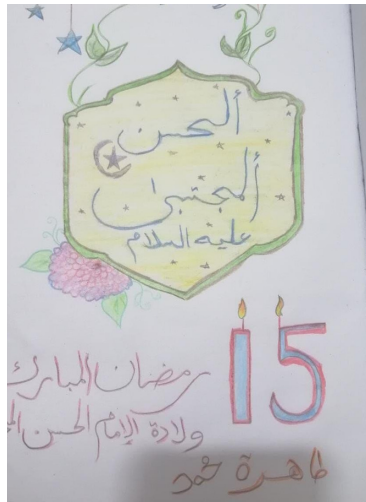 ألحسن
ألمجتبى
عليه السلام
15
رمضان المبارك
ولادة الإمام الحسن
طاهرة حمد